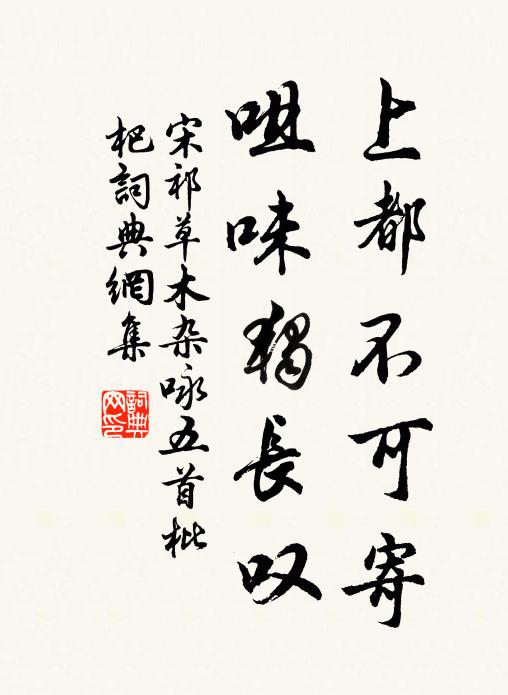 上都不可寄
咀味獨長叹
宋祁草木杂咏五首枇
杷詞典網集
詞典
网印